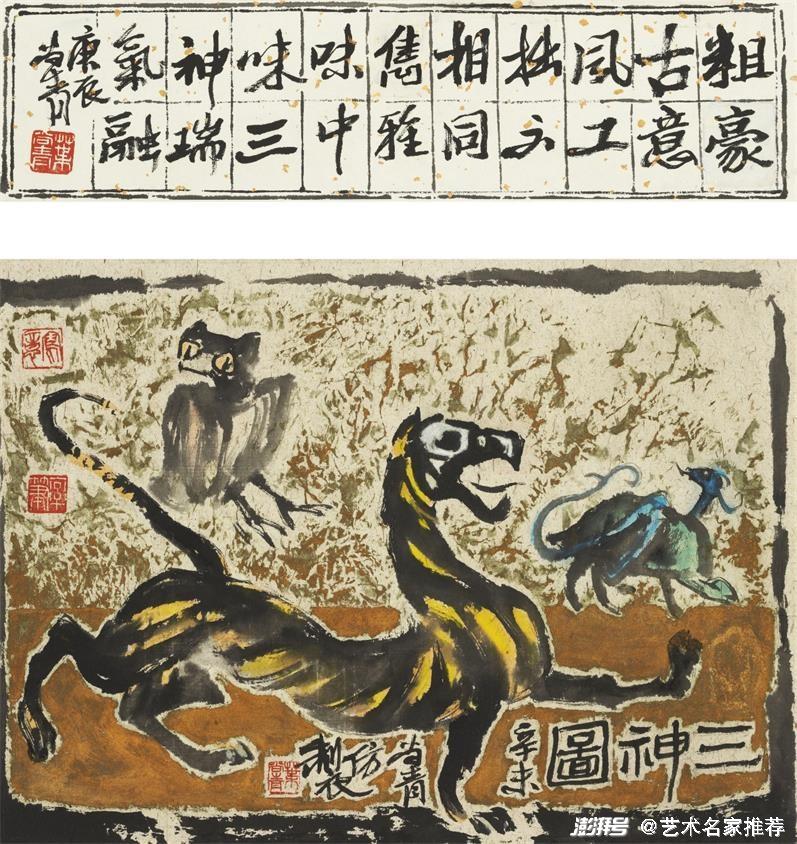 粗豪
古意
风工
拙不
相同
儁雅
味中
味三
神瑞
氣融
庚辰
尚青
葉尚青
三神圖
辛未
尚青
仿製
葉尚青
澎湃号 @艺术名家推荐